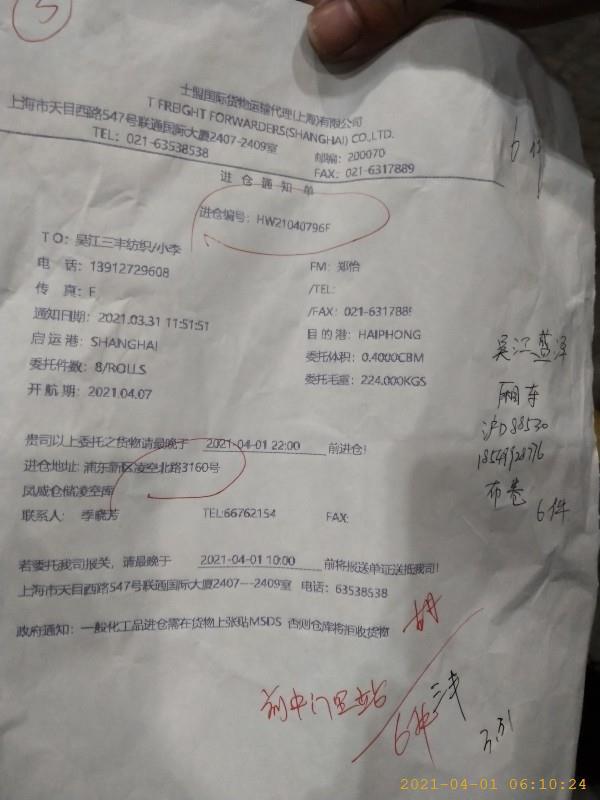 5
士盟国际货物运输代理(上海)有限公司
T FREIGHT FORWARDERS(SHANGHAI) CO.,LTD.
上海市天目西路547号联通国际大厦2407-2409室 邮编：200070
TEL：021-63538538 FAX：021-6317889
6件
进仓通知单
进仓编号：HW21040796F
TO：吴江三丰纺织/小李 FM：郑怡
电 话：13912729608 /TEL:
传 真：F /FAX：021-6317889
通知日期：2021.03.31 11:51:51 目的港：HAIPHONG
启运港：SHANGHAI 委托体积：0.4000CBM
委托件数：8/ROLLS 委托毛重：224.000KGS
开航期：2021.04.07
吴江盛泽
沪D88530
布卷
6件
贵司以上委托之货物请最晚于 2021-04-01 22:00 前进仓!
进仓地址：浦东新区凌空北路3160号
凤威仓储凌空库
联系人： 季晓芳 TEL:66762154 FAX:
若委托我司报关，请最晚于 2021-04-01 10:00 前将报送单证送抵我司!
上海市天目西路547号联通国际大厦2407---2409室 电话：63538538
政府通知：一般化工品进仓需在货物上张贴MSDS 否则仓库将拒收货物
6件
三丰
3.31
2021-04-01 06:10:24